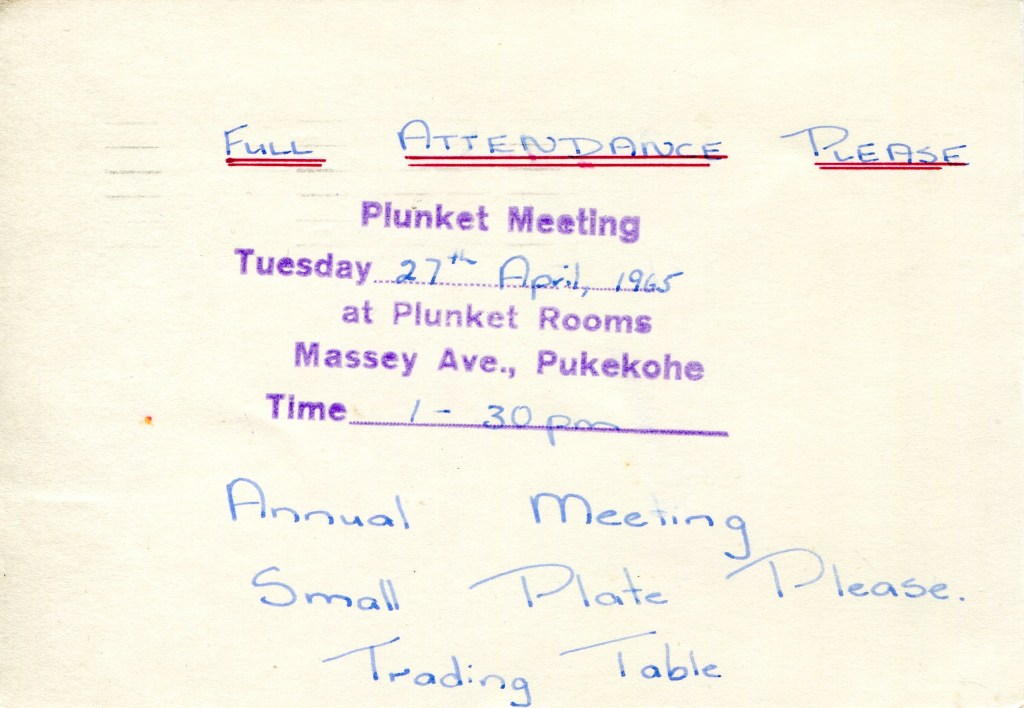 FULL ATTENDANCE PLEASE
Plunket Meeting
Tuesday 27th April, 1965
at Plunket Rooms
Massey Ave., Pukekohe
Time 1-30pm
Annual Meeting
Small Plate Please.
Trading Table